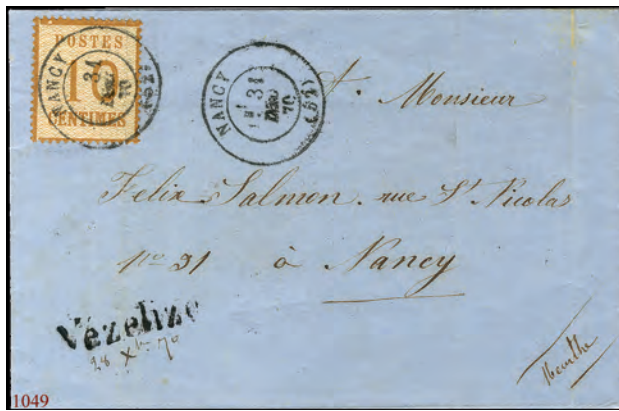 POSTES
10
CENTIMES
NANCY
31
70
NANCY
31
70
Monsieur
Felix Salmon rue St Nicolas
no 31 à Nancy
Vézelize
28 Xbre 70
Meurthe
1049